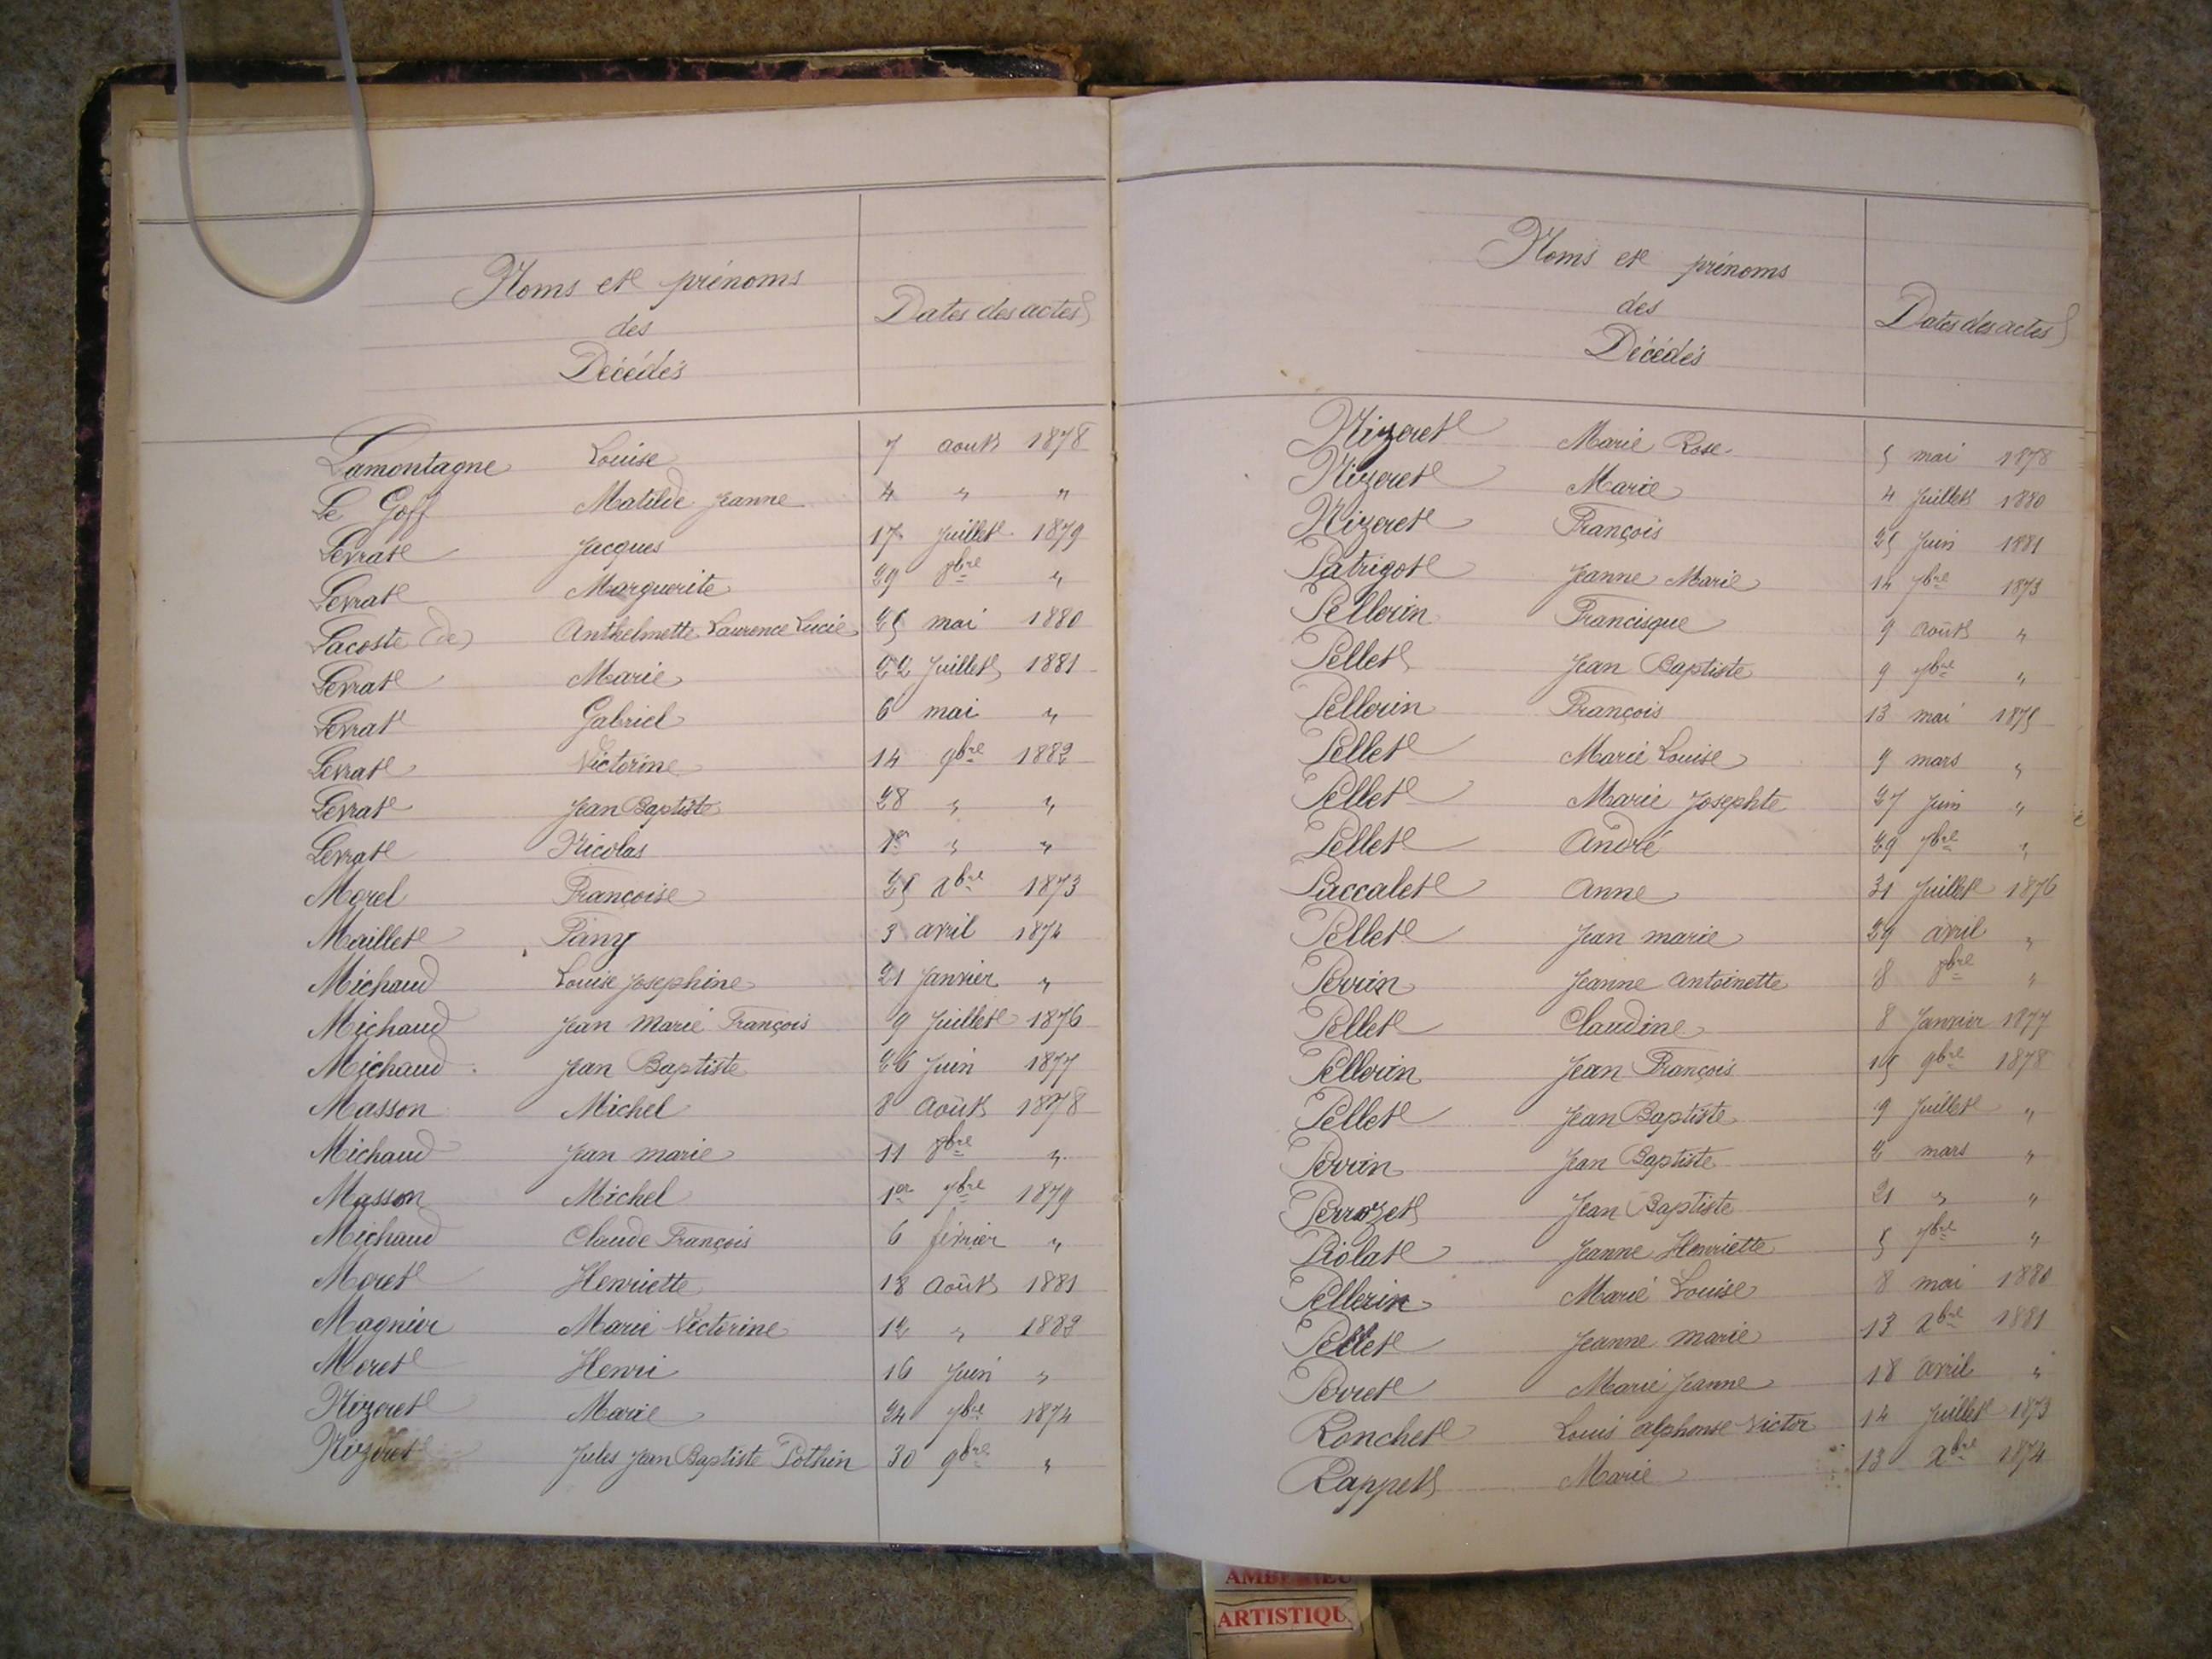 Noms et prénoms
des
Décédés
Dates des actes
Lamontagne Louise 7 août 1878
Le Goff Matilde Jeanne 4 " "
Levrat Jacques 17 juillet 1879
Levrat Marguerite 29 8bre "
Lacoste (de) Anthelmette Laurence Lucie 25 mai 1880
Levrat Marie 22 Juillet 1881
Levrat Gabriel 6 mai "
Levrat Victorine 14 9bre 1882
Levrat Jean Baptiste 28 " "
Levrat Nicolas 1er " "
Morel Françoise 25 Xbre 1873
Maillet Fany 3 avril 1874
Michaud Louise Josephine 21 Janvier "
Michaud Jean Marie François 9 Juillet 1876
Michaud Jean Baptiste 26 Juin 1877
Masson Michel 8 Août 1878
Michaud Jean marie 11 8bre "
Masson Michel 1er 7bre 1879
Michaud Claude François 6 février "
Moret Henriette 18 Août 1881
Magnier Marie Victorine 12 " 1882
Moret Henri 16 Juin "
Nizeret Marie 24 7bre 1874
Nizeret Jules Jean Baptiste Pothin 30 9bre "
Noms et prénoms
des
Décédés
Dates des actes
Nizeret Marie Rose 5 mai 1878
Nizeret Marie 4 Juillet 1880
Nizeret François 25 Juin 1881
Patrigot Jeanne Marie 14 7bre 1873
Pellerin Francisque 9 août "
Pellet Jean Baptiste 9 7bre "
Pellerin François 13 mai 1875
Pellet Marie Louise 9 mars "
Pellet Marie Josephte 27 Juin "
Pellet André 29 7bre "
Paccalet Anne 31 Juillet 1876
Pellet Jean marie 29 avril "
Perrin Jeanne Antoinette 8 8bre "
Pellet Claudine 8 Janvier 1877
Pellerin Jean François 15 9bre 1878
Pellet Jean Baptiste 9 Juillet "
Perrin Jean Baptiste 2 mars "
Perrozet Jean Baptiste 21 " "
Piolat Jeanne Henriette 5 7bre "
Pellerin Marie Louise 8 mai 1880
Pellet Jeanne marie 13 Xbre 1881
Perret Marie Jeanne 18 avril "
Ronchet Louis alphonse Victor 14 Juillet 1873
Rappet Marie 13 Xbre 1874
ARTISTIQU